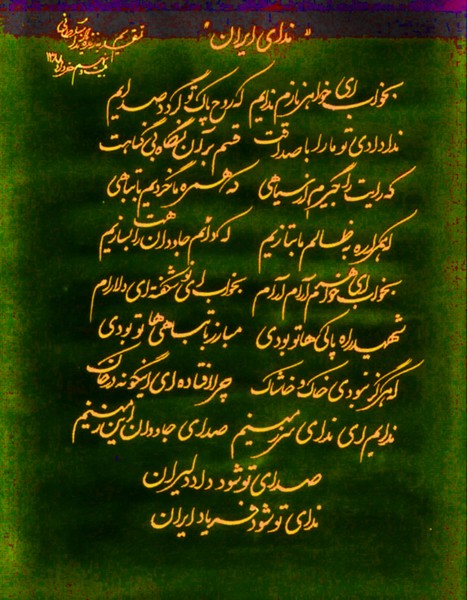 "ندای ایران"
تقدیم به
بخواب ای خواهر نازم ندایم که روح پاک تو گردد صدایم
ندا دادی تو ما را با صداقت قسم بر آن نگاه بی گناهت
که رایت را بگیرم از سیاهی که همره ما خریدیم با تباهی
که بر ظالم ما بتازیم که دانیم جاودان راهت بسازیم
بخواب ای هنرم آرام آرام بخواب ای نو شکفته ای دلارام
شهید راه پاکی ها تو بودی مبارز با تباهی ها تو بودی
که هرگز نبودی خاک و خاشاک چرا افتاده ای اینگونه در خاک
ندایم ای ندای سرزمینم صدای جاودان این زمینم
صدای تو شود داد دلیران
ندای تو شود فریاد ایران